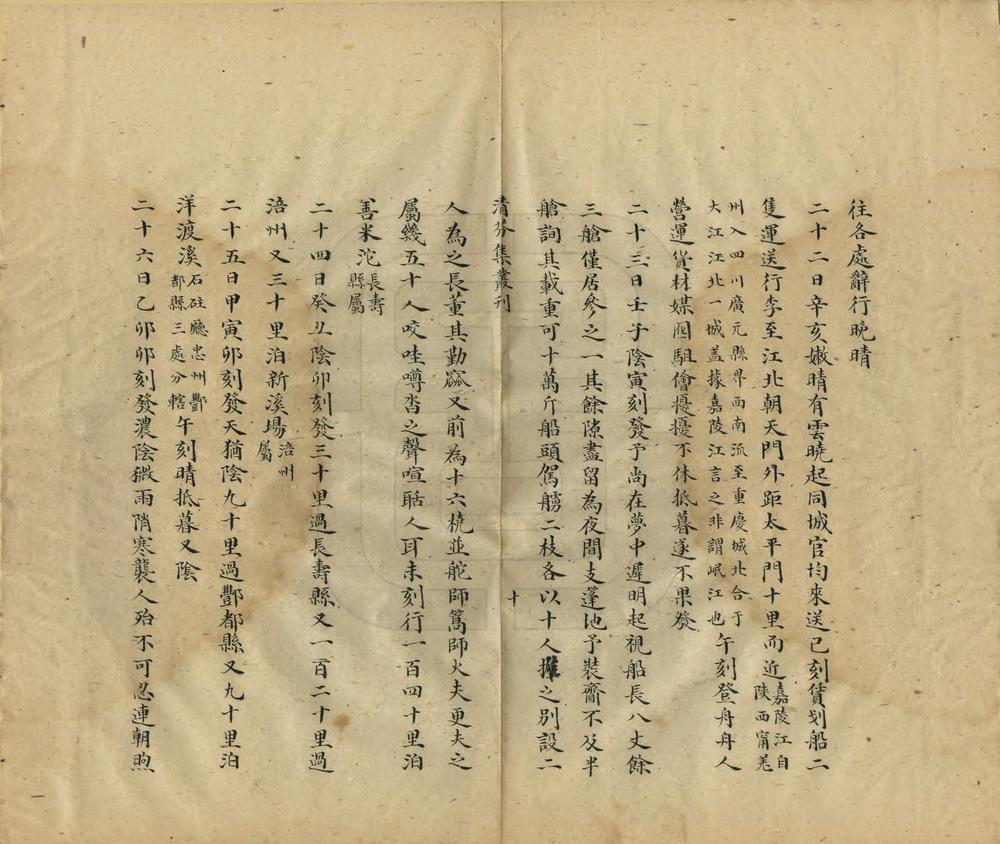 往各處辭行晚晴
二十二日辛亥嫩晴有雲曉起同城官均來送已刻賃划船二
隻運送行李至江北朝天門外距太平門十里而近嘉陵江自陝西甯羌
州入四川廣元縣界西南流至重慶城北合于大江江北一城盖據嘉陵江言之非謂岷江也午刻登舟舟人
營運貨材媒囮駔儈擾擾不休抵暮遂不果發
二十三日壬子陰寅刻發予尚在夢中遲明起視船長八丈餘
三艙僅居參之一其餘隙盡留為夜間支蓬地予裝齎不及半
艙詢其載重可十萬斤船頭駕艣二枝各以十人摧之別設二
清芬集叢刊
十
人為之長董其勤窳又前為十六橈並舵師篙師火夫更夫之
屬幾五十人咬哇噂沓之聲喧聒人耳未刻行一百四十里泊
善米沱長壽縣屬
二十四日癸丑陰卯刻發三十里過長壽縣又一百二十里過
涪州又三十里泊新溪場涪州屬
二十五日甲寅卯刻發天猶陰九十里過酆都縣又九十里泊
洋渡溪石砫廳忠州酆都縣三處分轄午刻晴抵暮又陰
二十六日乙卯卯刻發濃陰微雨陗寒襲人殆不可忍連朝煦